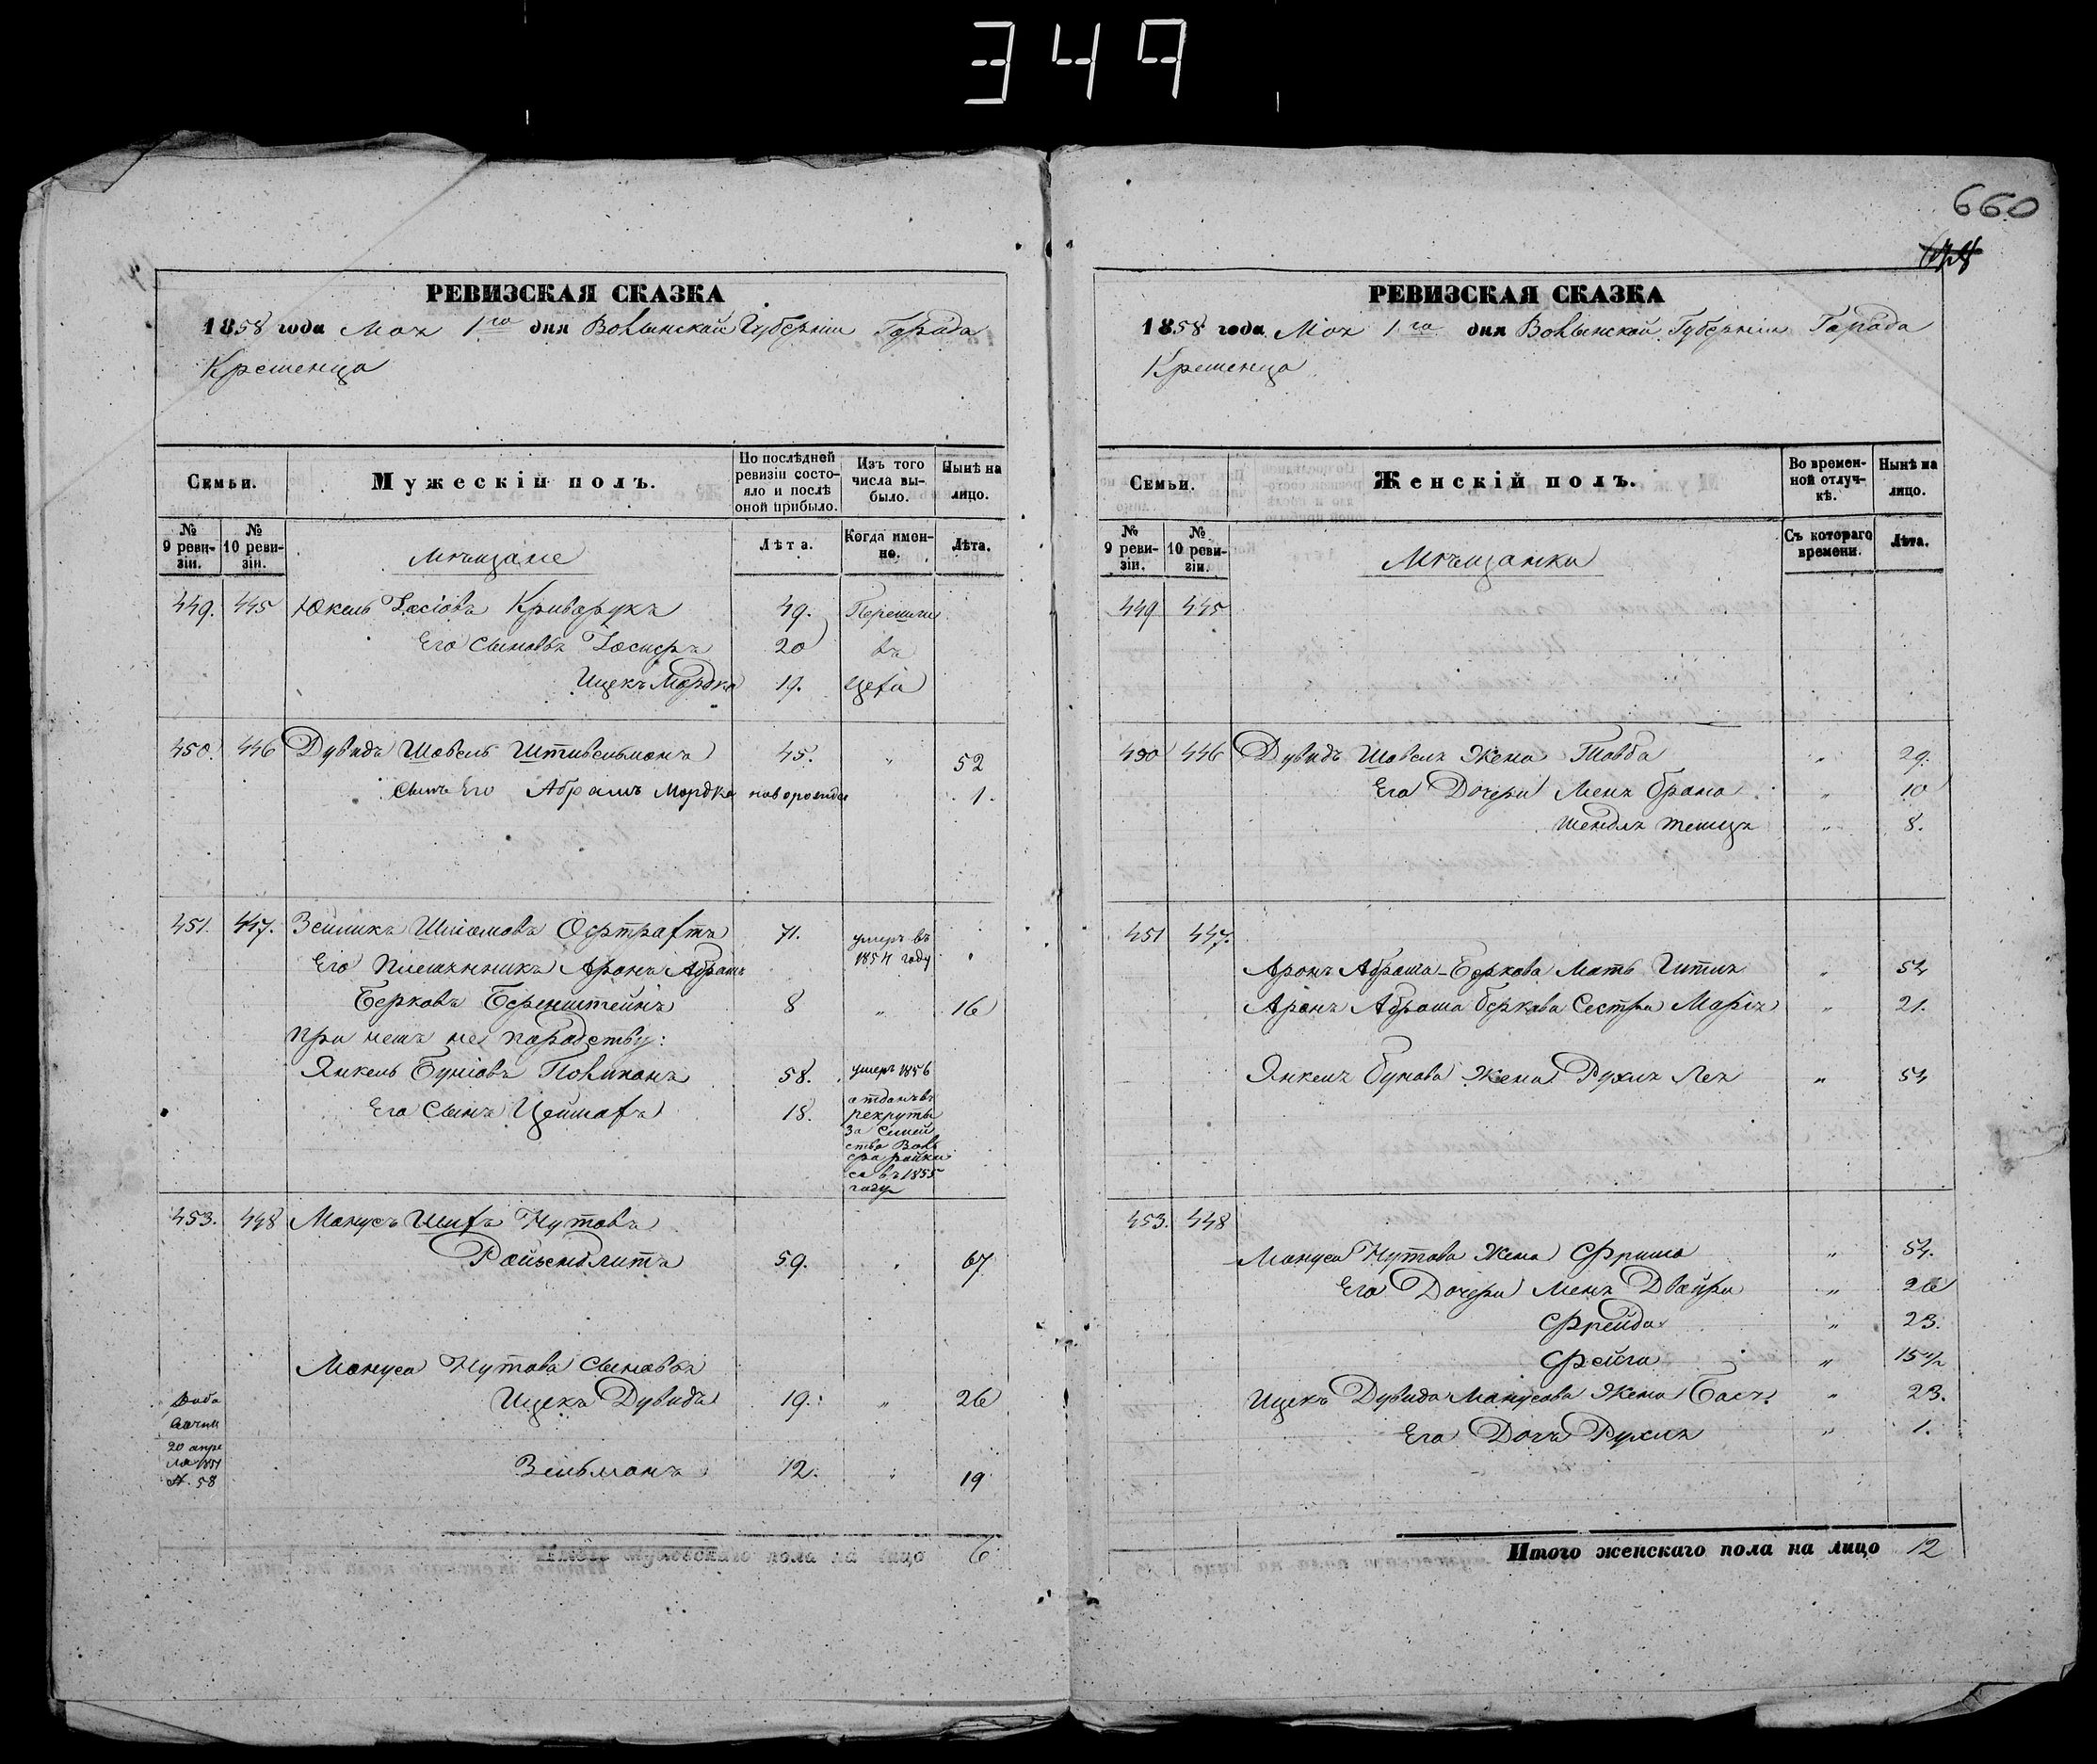 349
660
РЕВИЗСКАЯ СКАЗКА
1858 года Мая 1го дня Волынской Губерніи Города
Кременца
Семьи.
Мужескій полъ.
По послѣдней ревизіи состояло и послѣ оной прибыло.
Изъ того числа выбыло.
Нынѣ на лицо.
№ 9 ревизіи.
№ 10 ревизіи.
Мѣщане
Лѣта.
Когда именно.
Лѣта.
449. 445 Юкель Іосіовъ Криворукъ 49. Перешли
Его сыновья Іосифъ 20 въ
Ицекъ Мордко 19. цехи
450. 446 Дувидъ Шовель Штивельманъ 45. " 52
сынъ Его Абрамъ Мордко новорожде " 1.
451. 447. Зейликъ Шліомовъ 71. умеръ въ 1854 году
Его Племянникъ Аронъ Абрамъ
Берковъ Беренштейнъ 8 " 16
При немъ не породству:
Янкель Буніовъ 58. умеръ 1856
Его сынъ 18. отданъ въ
рекруты
за семей
ство
въ 1855
году
453. 448 Манусъ Нутовъ
59. " 67
Мануса Нутова сыновья
Ицекъ Дувидъ 19. " 26
20 апре
ля 1851
№ 58
Зельманъ 12. " 19
Итого мужескаго пола на лицо 6
РЕВИЗСКАЯ СКАЗКА
1858 года Мая 1го дня Волынской Губерніи Города
Кременца
Семьи.
Женскій полъ.
Во временной отлучкѣ.
Нынѣ на лицо.
№ 9 ревизіи.
№ 10 ревизіи.
Мѣщанки
Съ котораго времени.
Лѣта.
449 445
450 446 Дувидъ Шовеля Жена Товба " 29.
Его Дочери " 10
" 8.
451 447.
Аронъ Абрама-Беркова Мать Гитля " 54
Аронъ Абрама Беркова Сестра Марія " 21.
Янкеля Бунова Жена Рухля Лея " 54
453. 448
Мануса Нутова Жена Фрима " 54.
Его Дочери Двойра " 26
Фрейда " 23.
Фейга " 15 1/2
Ицекъ Дувида Манусова Жена Бася " 23.
Его Дочь Рухля " 1.
Итого женскаго пола на лицо 12